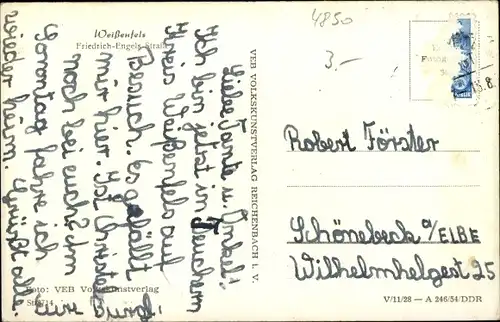 Weißenfels
Friedrich-Engels-Straße
4850
3.-
Liebe Tante u. Onkel!
Ich bin jetzt in Teuchern
Kreis Weißenfels auf
Besuch. Es gefällt
mir hier. Ist Christel
noch bei euch? Am
Sonntag fahre ich
wieder heim. Grüßt alle
eure
VEB VOLKSKUNSTVERLAG REICHENBACH i. V.
Robert Förster
Schönebeck a/ELBE
Wilhelmhelgest 25
Foto: VEB Volkskunstverlag
V/11/28 — A 246/54/DDR